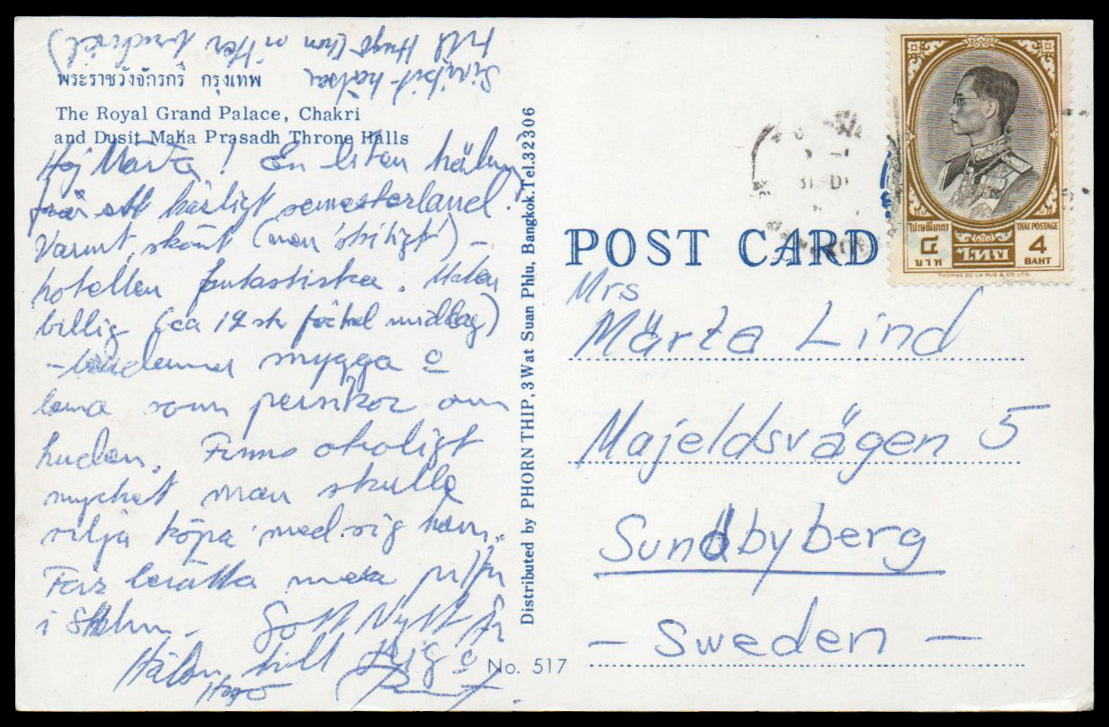 พระราชวังจักรกรี กรุงเทพ
The Royal Grand Palace, Chakri
and Dusit Maha Prasadh Throne Halls
Hej Märta! En liten hälsn
från ett härligt semesterland.
Varmt, skönt (men 'skitigt') –
hotellen fantastiska. Maten
billig (ca 12 sk middag)
mygga o
lena som persikor om
huden. Finns otroligt
mycket man skulle
vilja köpa med sig hem.
Får berätta mera
i Sthlm – Gott Nytt År
Hälsn till Dig o
Hugo
till Hugo (hon sitter bredvid)
Distributed by PHORN THIP, 3 Wat Suan Phlu, Bangkok. Tel. 32306
No. 517
POST CARD
Mrs
Märta Lind
Majeldsvägen 5
Sundbyberg
– Sweden –
ไปรษณียากร
THAI POSTAGE
๔
บาท
ไทย
4
BAHT
THOMAS DE LA RUE & CO. LTD.